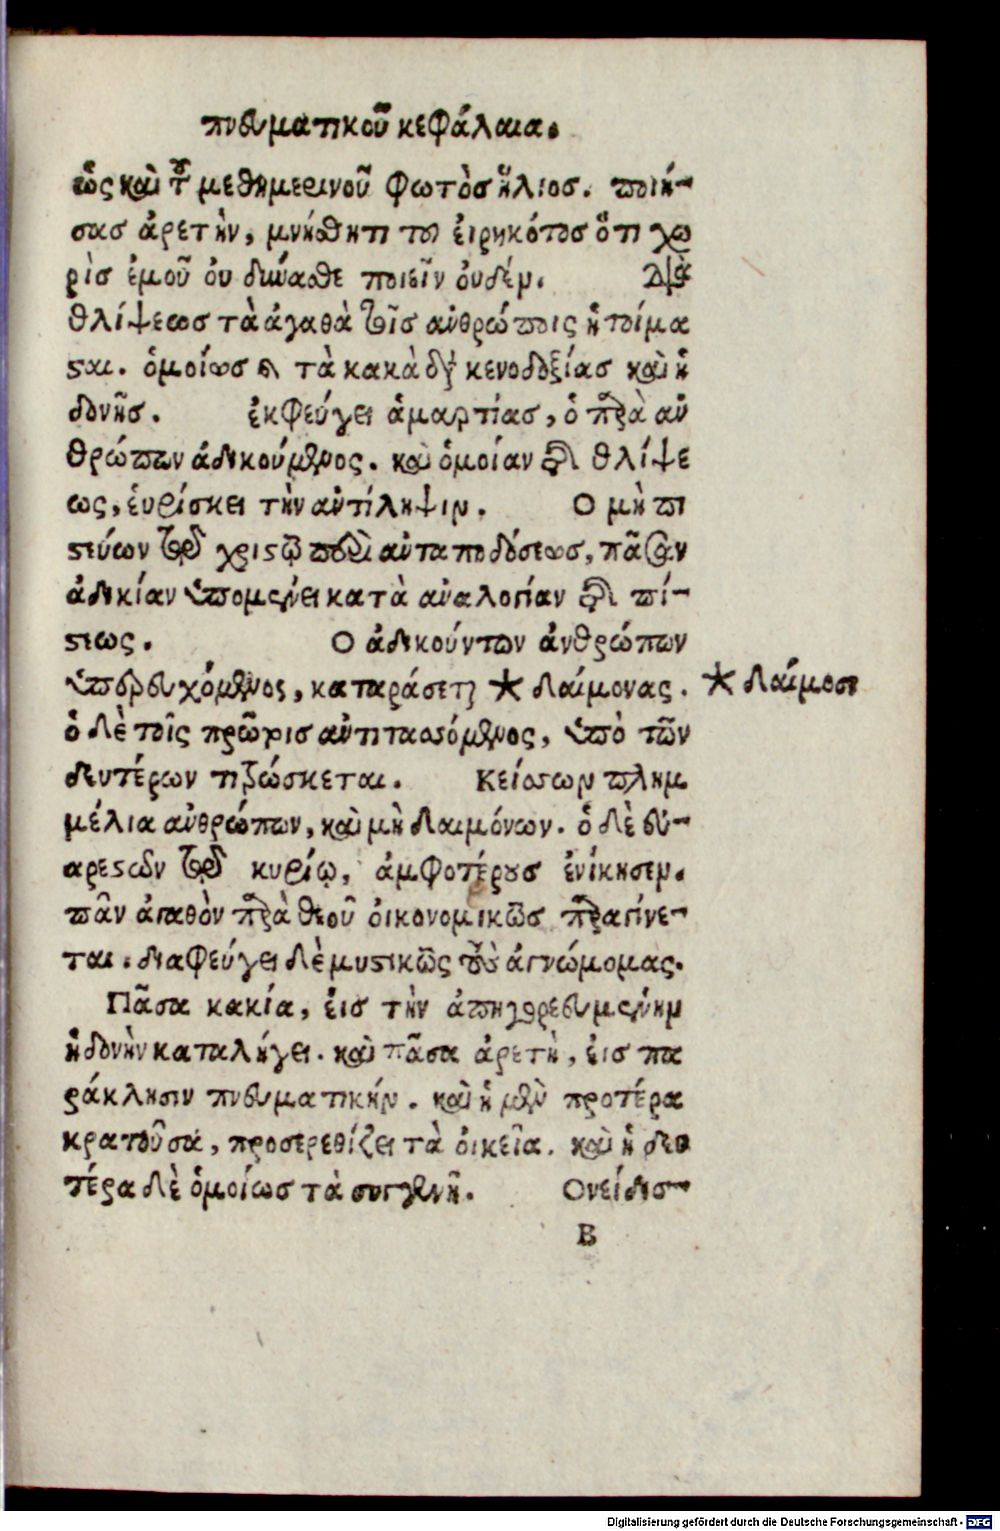 πνευματικοῦ κεφάλαια.
ἑὼς καὶ τοῦ μεθημερινοῦ φωτὸσ ἥλιοσ. ποιή-
σασ ἀρετὴν, μνήσθητι τοῦ ἐιρηκότοσ ὅτι χω
ρὶσ ἐμοῦ ὀυ δύνασθε ποιεῖν ὀυδέν. διὰ
θλίψεωσ τὰ ἀγαθὰ τοῖσ ἀνθρώποις ἡτοίμα
σται. ὁμοίωσ καὶ τὰ κακὰ διὰ κενοδοξίασ καὶ ἡ
δονῆσ. ἐκφεύγει ἁμαρτίασ, ὁ παρὰ ἀν
θρώπων ἀδικούμενος. καὶ ὁμοίαν τῆς θλίψε
ως, ἑυρίσκει τὴν ἀντίληψιν. Ο μὴ πι
στεύων τῷ χριστῷ περὶ ἀνταποδόσεωσ, πᾶσαν
ἀδικίαν ὑπομένει κατὰ ἀναλογίαν τῆς πί-
στεως. Ο ἀδικούντων ἀνθρώπων
ὑπερευχόμενος, καταράσεται * δαίμονας. * δαίμοσι
ὁ δὲ τοῖς πρῶτοισ ἀντιτασσόμενος, ὑπὸ τῶν
δευτέρων τιτρώσκεται. Κρείσσων πλημ
μέλια ἀνθρώπων, καὶ μὴ δαιμόνων. ὁ δὲ ἐυ-
αρεστῶν τῷ κυρίῳ, ἀμφοτέρουσ ἐνίκησεν.
πᾶν ἀγαθὸν παρὰ θεοῦ ὀικονομικῶσ παραγίνε-
ται. διαφεύγει δὲ μυστικῶς τοὺς ἀγνώμομας.
Πᾶσα κακία, ἐισ τὴν ἀπηγορευμένην
ἡδονὴν καταλήγει. καὶ πᾶσα ἀρετὴ, ἐισ πα
ράκλησιν πνευματικήν. καὶ ἡ μὲν προτέρα
κρατοῦσα, προσερεθίζει τὰ ὀικεῖα. καὶ ἡ δευ
τέρα δὲ ὁμοίωσ τὰ συγγενῆ. Ονείδισ-
B
Digitalisierung gefördert durch die Deutsche Forschungsgemeinschaft - DFG